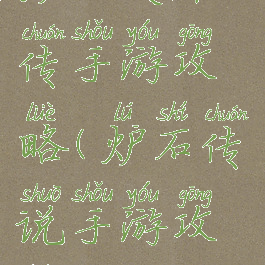 chuán shǒu yóu gōng
传手游攻
lüè lú shí chuán
略(炉石传
shuō shǒu yóu gōng
说手游攻